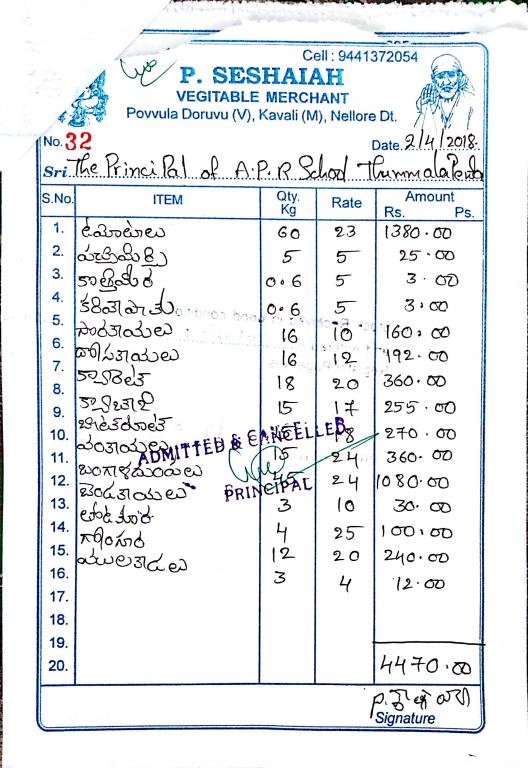 Cell : 9441372054
P. SESHAIAH
VEGITABLE MERCHANT
Povvula Doruvu (V), Kavali (M), Nellore Dt.
No. 32 Date. 2/4/2018
Sri The Principal of A.P.R School Thummalapenta
S.No. ITEM Qty. Kg Rate Amount Rs. Ps.
1. టమోటాలు 60 23 1380.00
2. పచ్చిమిర్చి 5 5 25.00
3. కొత్తిమీర 0.6 5 3.00
4. కరివేపాకు 0.6 5 3.00
5. సొరకాయలు 16 10 160.00
6. దోసకాయలు 16 12 192.00
7. క్యారెట్ 18 20 360.00
8. క్యాబేజి 15 17 255.00
9. బీట్‌రూట్ 15 18 270.00
10. వంకాయలు 15 24 360.00
11. బంగాళదుంపలు 45 24 1080.00
12. బెండకాయలు 3 10 30.00
13. తోటకూర 4 25 100.00
14. గోంగూర 12 20 240.00
15. ములకాడలు 3 4 12.00
16.
17.
18.
19.
20. 4470.00
ADMITTED & CANCELLED
PRINCIPAL
Signature